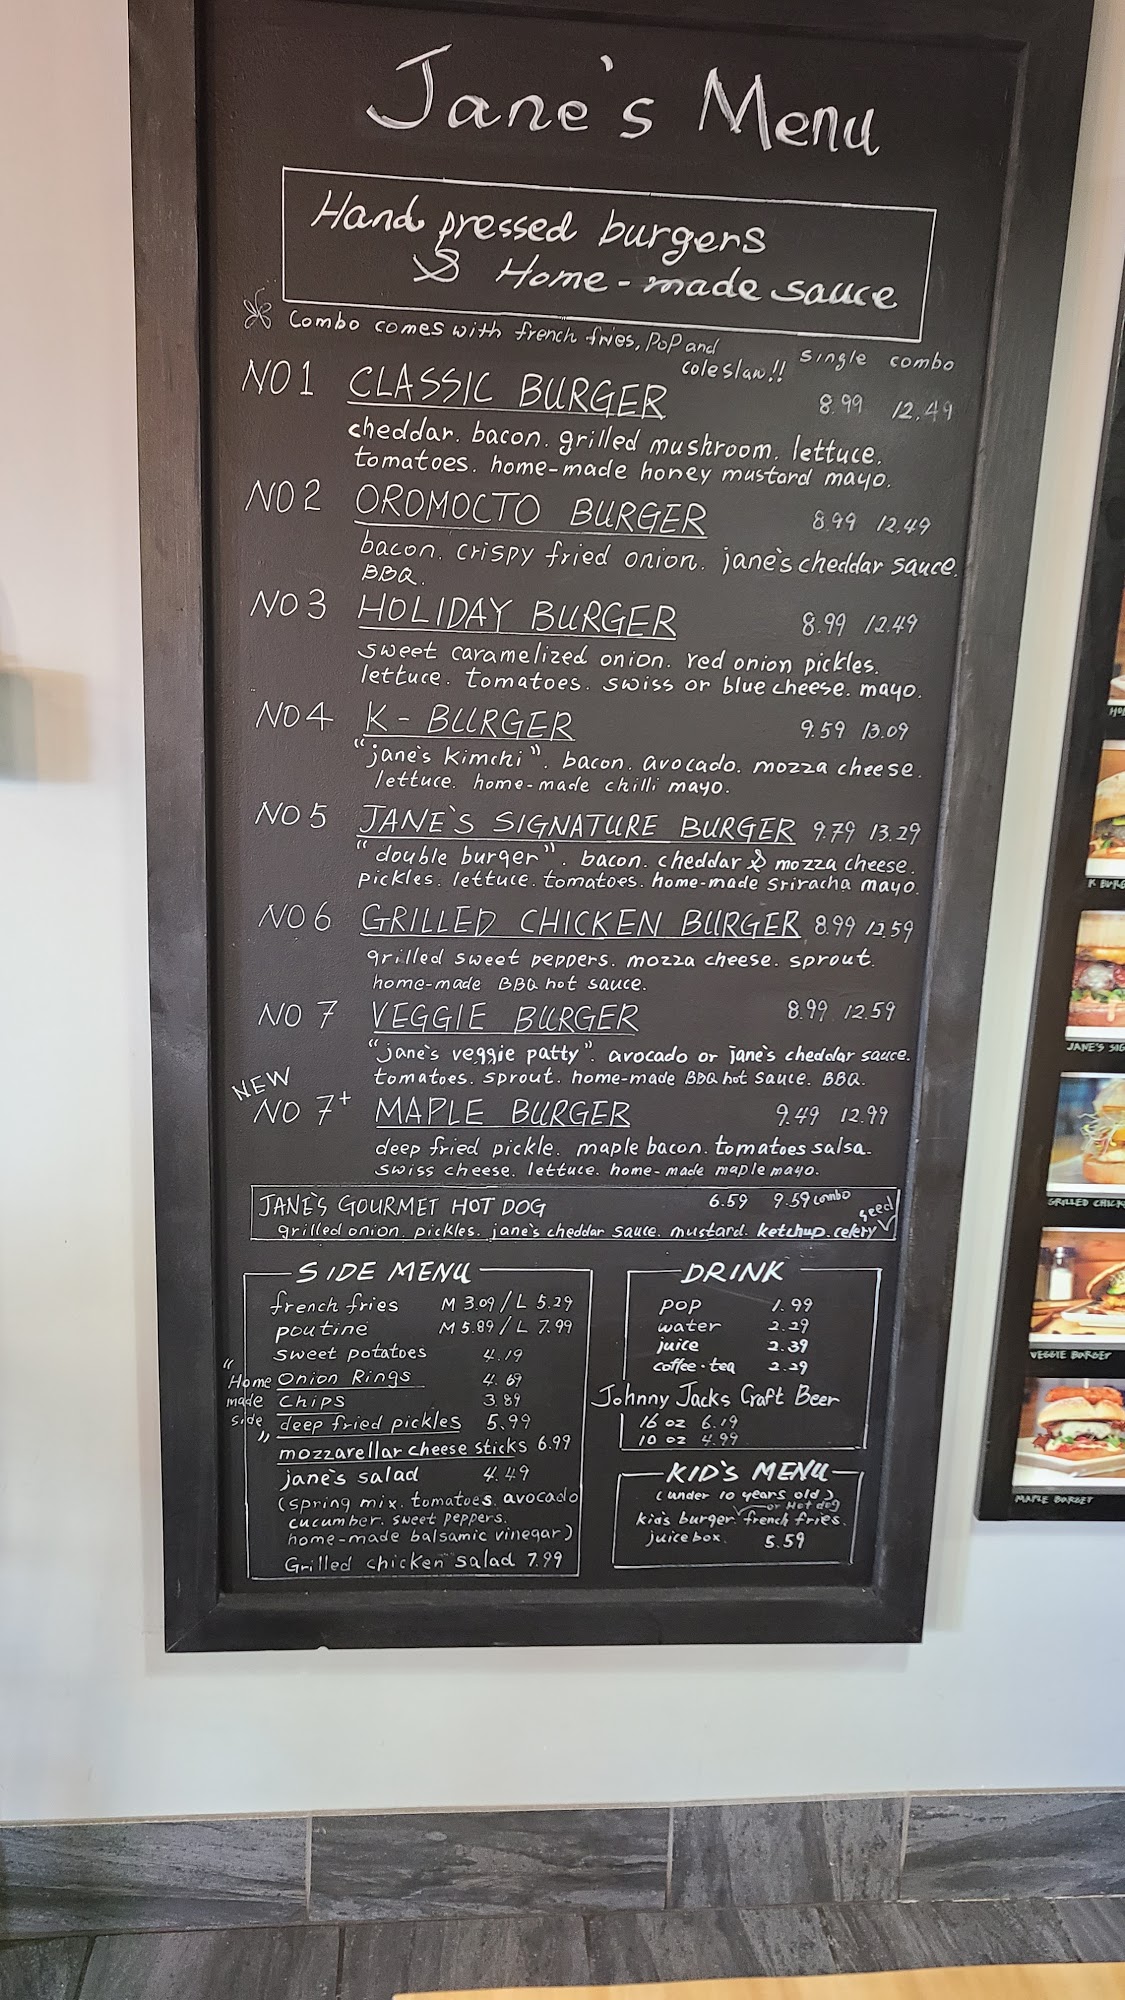 Jane's Menu
Hand pressed burgers
& Home-made sauce
Combo comes with french fries, pop and
coleslaw!!
single combo
NO 1 CLASSIC BURGER 8.99 12.49
cheddar. bacon. grilled mushroom. lettuce.
tomatoes. home-made honey mustard mayo.
NO 2 OROMOCTO BURGER 8.99 12.49
bacon. crispy fried onion. jane's cheddar sauce.
BBQ.
NO 3 HOLIDAY BURGER 8.99 12.49
sweet caramelized onion. red onion pickles.
lettuce. tomatoes. swiss or blue cheese. mayo.
NO 4 K-BURGER 9.59 13.09
"jane's kimchi". bacon. avocado. mozza cheese.
lettuce. home-made chilli mayo.
NO 5 JANE'S SIGNATURE BURGER 9.79 13.29
"double burger". bacon. cheddar & mozza cheese.
pickles. lettuce. tomatoes. home-made sriracha mayo.
NO 6 GRILLED CHICKEN BURGER 8.99 12.59
grilled sweet peppers. mozza cheese. sprout.
home-made BBQ hot sauce.
NO 7 VEGGIE BURGER 8.99 12.59
"jane's veggie patty". avocado or jane's cheddar sauce.
tomatoes. sprout. home-made BBQ hot sauce. BBQ.
NEW
NO 7+ MAPLE BURGER 9.49 12.99
deep fried pickle. maple bacon. tomatoes salsa.
swiss cheese. lettuce. home-made maple mayo.
JANE'S GOURMET HOT DOG 6.59 9.59 combo
grilled onion. pickles. jane's cheddar sauce. mustard. ketchup. celery seed
SIDE MENU
french fries M 3.09 / L 5.29
poutine M 5.89 / L 7.99
sweet potatoes 4.19
"Home made side"
Onion Rings 4.69
Chips 3.89
deep fried pickles 5.99
mozzarellar cheese sticks 6.99
jane's salad 4.49
(spring mix. tomatoes. avocado
cucumber. sweet peppers.
home-made balsamic vinegar)
Grilled chicken salad 7.99
DRINK
pop 1.99
water 2.29
juice 2.39
coffee · tea 2.29
Johnny Jacks Craft Beer
16 oz 6.19
10 oz 4.99
KID'S MENU
(under 10 years old)
or Hot dog
kid's burger french fries.
juice box. 5.59
K BURG
JANE'S SIG
GRILLED CHICK
VEGGIE BURGER
MAPLE BURGER